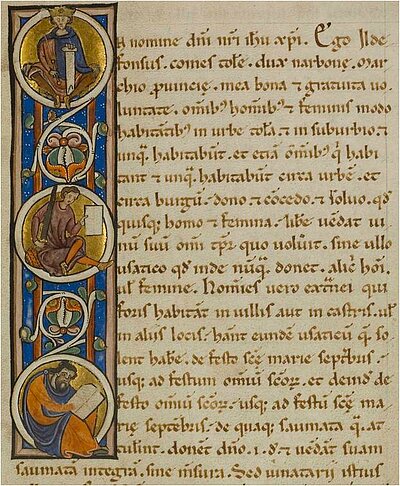 n nomine dñi nr̃i ihu xp̃i. Ego Ilde
fonsus. comes tolẽ. dux narbone. mar
chio ꝓuincie. mea bona & gratuita uo
luntate. omĩbʼ homĩbʼ & feminis modo
habitãtibʼ in urbe tolã & in suburbio &
unꝗ̃ habitabũt. et etiã omĩbʼ ꝗ̃ habi
tant & unꝗ̃ habitabũt circa urbẽ. et
circa burgũ. dono & cõcedo. & soluo. qd̃
quisqʒ homo & femina. libe uẽdat ui
nũ suũ omĩ tp̃r quo uolũit. sine ullo
usatico qd̃ inde nũꝗ̃ donet. alic̃ hoĩ.
ul̃ femine. Homĩes uero extñei qui
foris habitãt in uillis aut in castris. ul̃
in alijs locis. hãnt eundẽ usaticũ ꝗ̃ so
lent habẽ. de festo sc̃e marie septẽbr̃s
usqʒ ad festum omiũ sc̃or̃. et deinde de
festo omiũ sc̃or̃. usqʒ ad festũ sc̃e ma
rie septẽbr̃s. de quaqʒ saumata ꝗ̃. at
tulint. donet dño. i. đ. & uẽdãt suam
saumatã integrã. sine m̃sura. Sed uinatarii istius